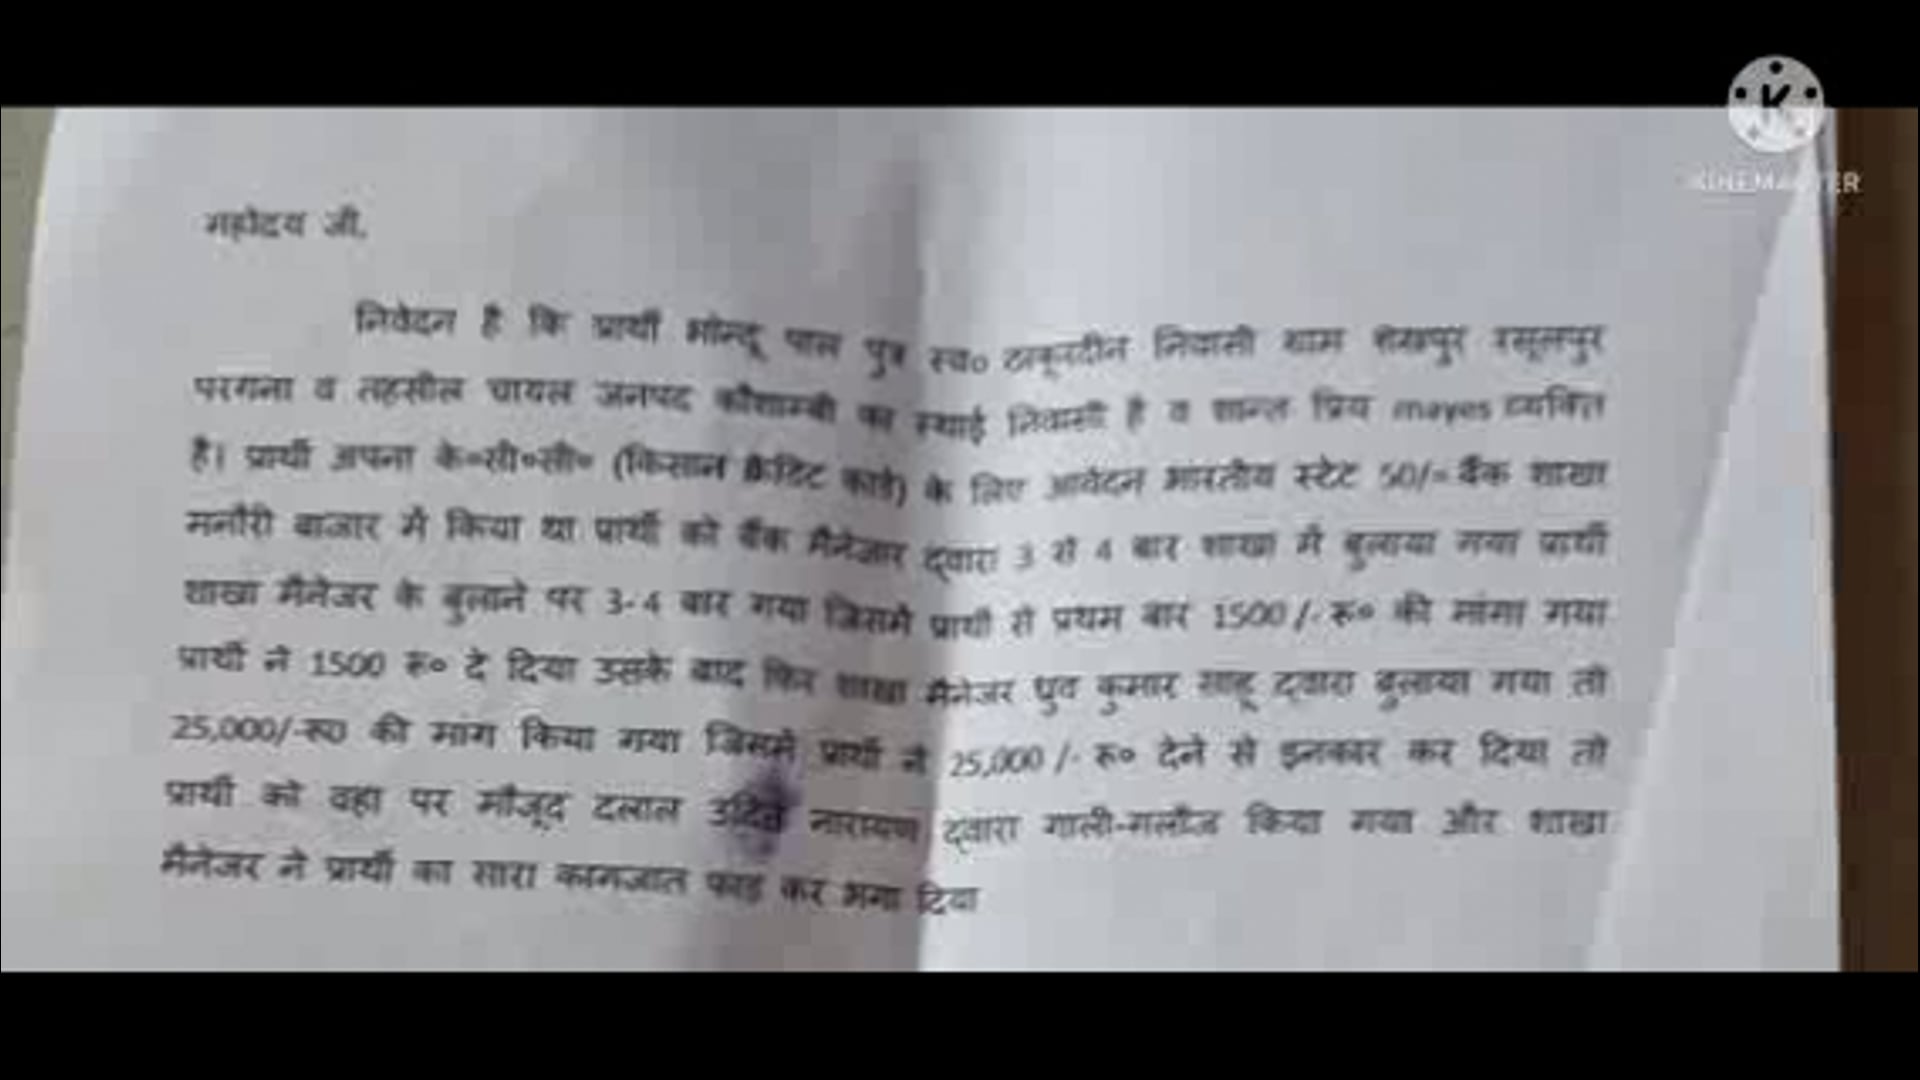 KINEMASTER
महोदय जी,
निवेदन है कि प्रार्थी भोन्दू पाल पुत्र स्व० ठाकूरदीन निवासी ग्राम शेखपुर रसूलपुर
परगना व तहसील चायल जनपद कौशाम्बी का स्थाई निवासी है व शान्त प्रिय mayos व्यक्ति
है। प्रार्थी अपना के०सी०सी० (किसान क्रेडिट कार्ड) के लिए आवेदन भारतीय स्टेट 50/= बैंक शाखा
मनौरी बाजार में किया था प्रार्थी को बैंक मैनेजार द्वारा 3 से 4 बार शाखा में बुलाया गया प्रार्थी
शाखा मैनेजर के बुलाने पर 3-4 बार गया जिसमे प्रार्थी से प्रथम बार 1500/- रू० की मांगा गया
प्रार्थी ने 1500 रू० दे दिया उसके बाद फिर शाखा मैनेजर ध्रुव कुमार साहू द्वारा बुलाया गया तो
25,000/-रू0 की मांग किया गया जिसमे प्रार्थी ने 25,000/- रू० देने से इनकार कर दिया तो
प्रार्थी को वहा पर मौजूद दलाल उदित नारायण द्वारा गाली-गलौज किया गया और शाखा
मैनेजर ने प्रार्थी का सारा कागजात फाड़ कर भगा दिया